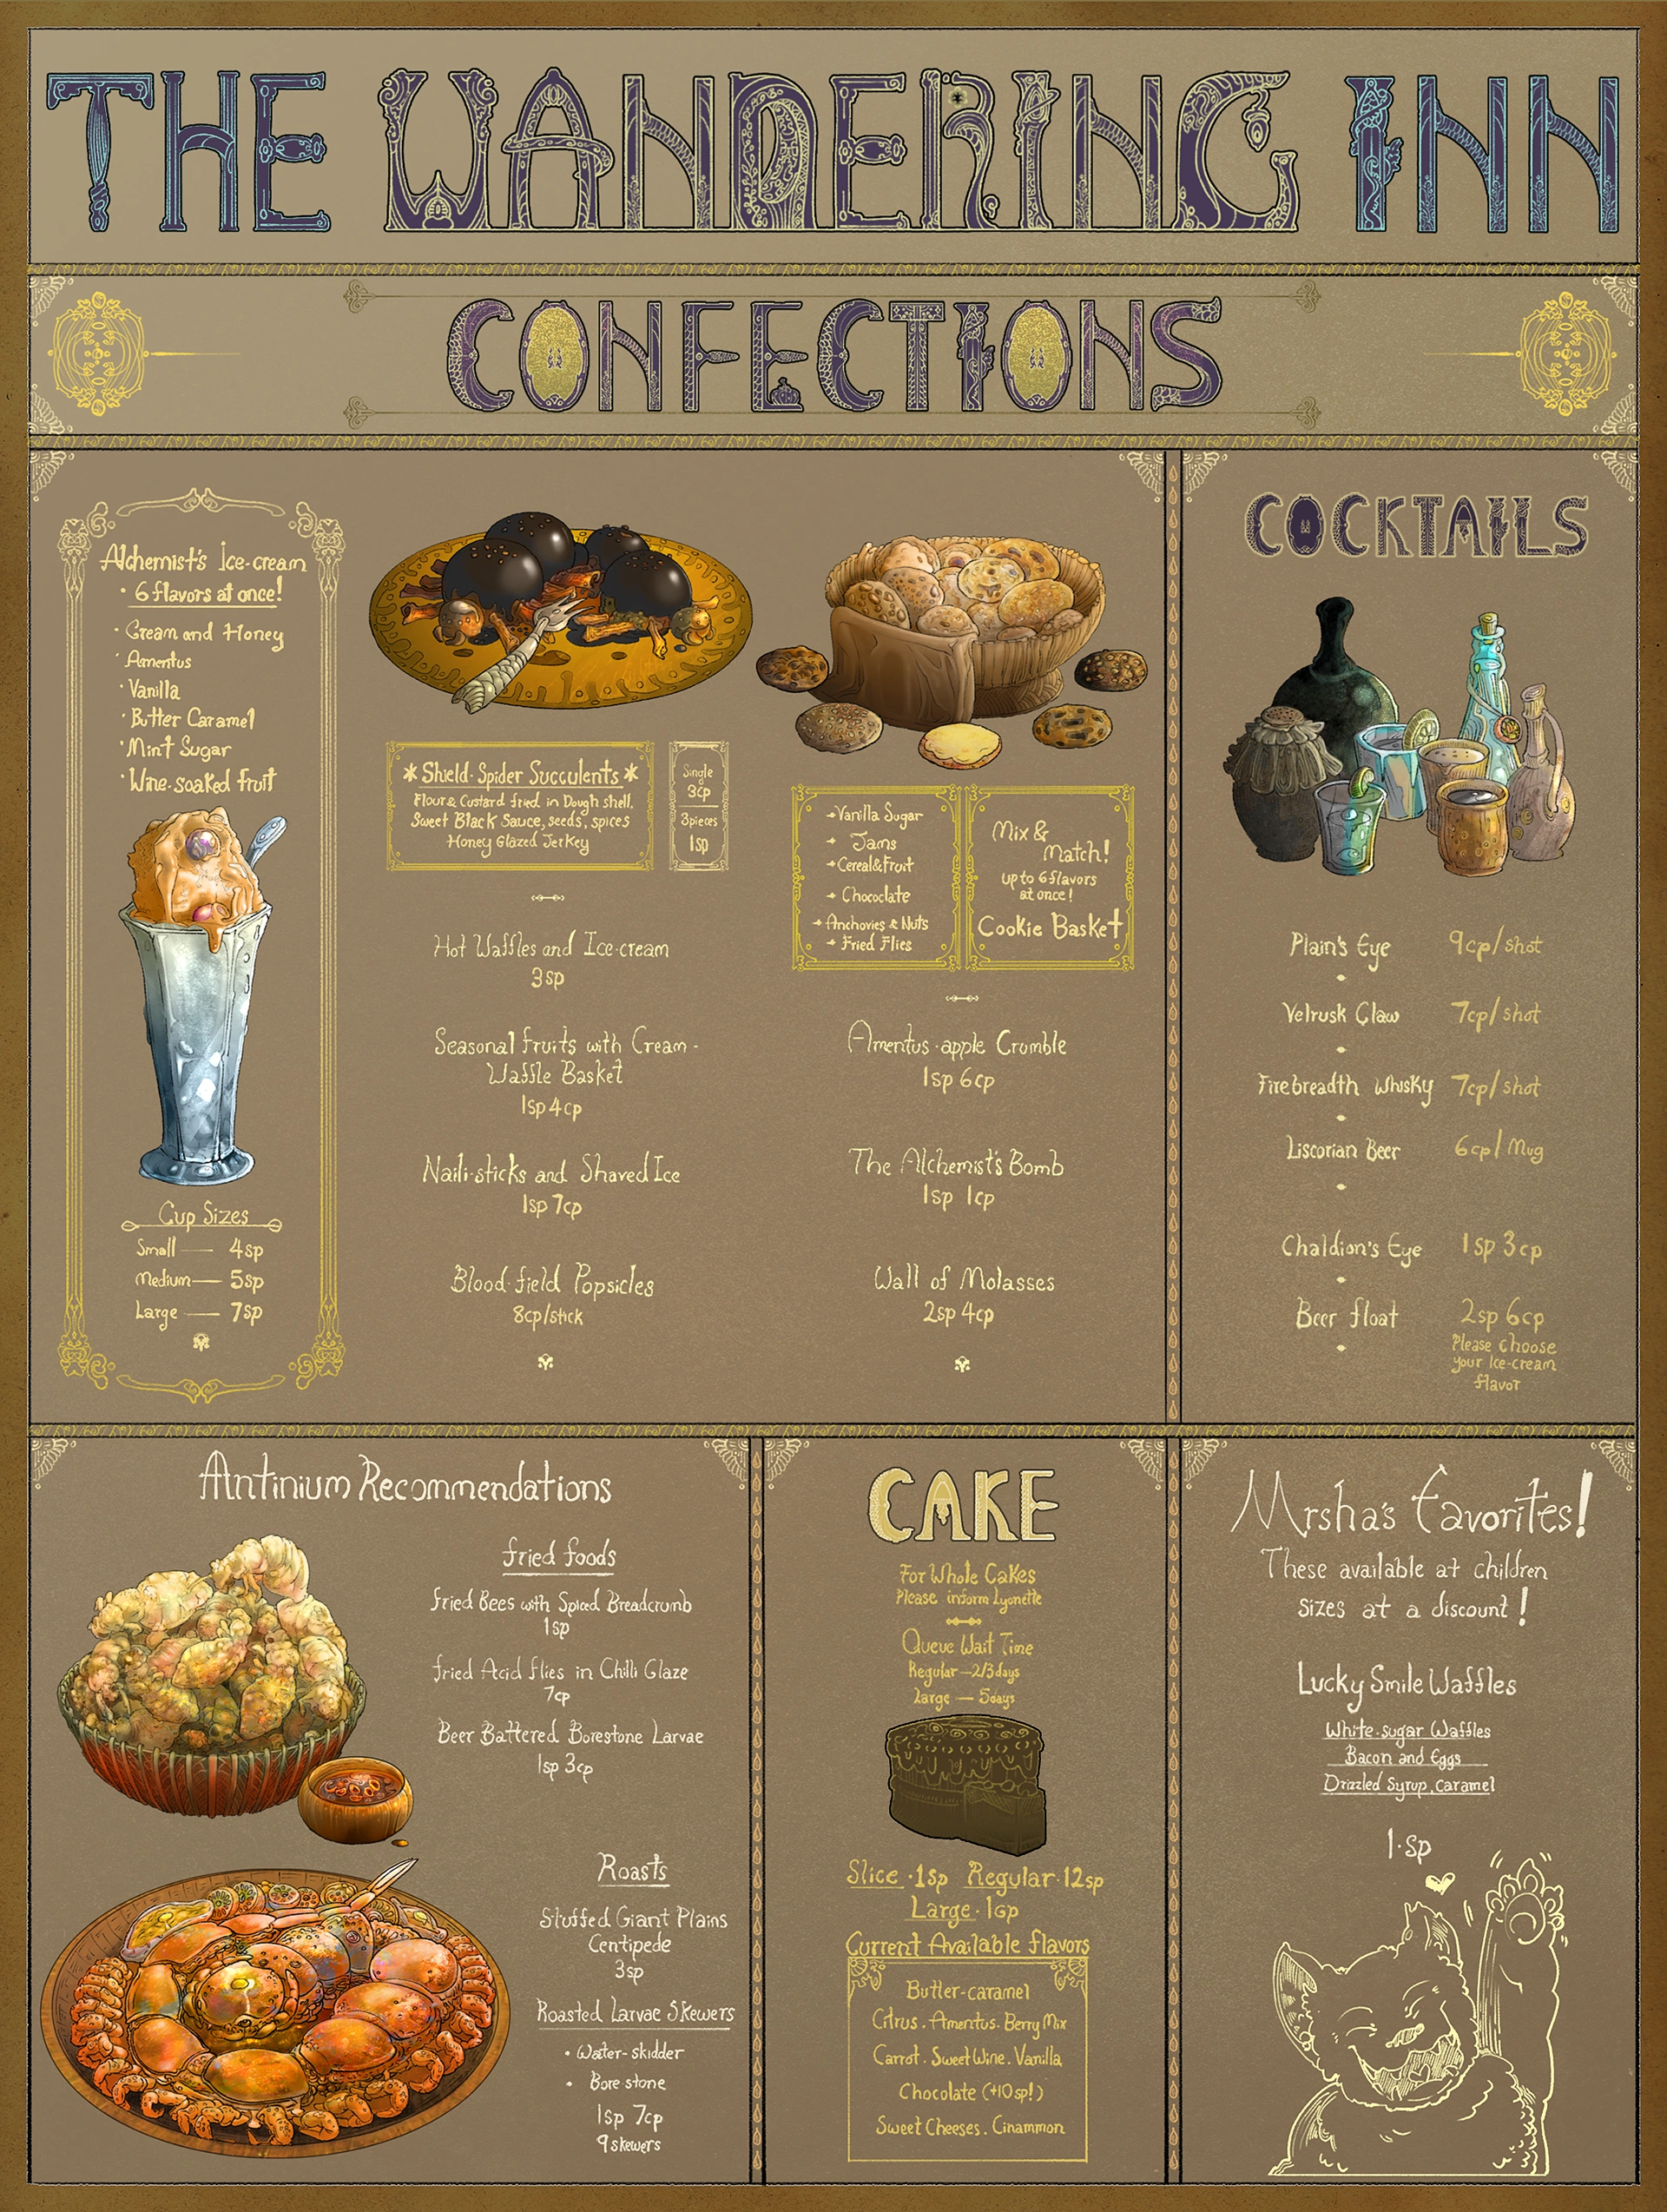 THE WANDERING INN
CONFECTIONS
Alchemist's Ice-cream
• 6 flavors at once!
• Cream and Honey
• Amentus
• Vanilla
• Butter Caramel
• Mint Sugar
• Wine-soaked fruit
Cup Sizes
Small — 4sp
Medium — 5sp
Large — 7sp
* Shield-Spider Succulents *
Flour & Custard fried in Dough shell.
Sweet Black Sauce, seeds, spices
Honey Glazed Jerkey
Single
3cp
3pieces
1sp
Hot Waffles and Ice-cream
3sp
Seasonal fruits with Cream -
Waffle Basket
1sp 4cp
Naili-sticks and Shaved Ice
1sp 7cp
Blood-field Popsicles
8cp/stick
Vanilla Sugar
Jams
Cereal & Fruit
Chococlate
Anchovies & Nuts
Fried Flies
Mix &
Match!
up to 6 flavors
at once!
Cookie Basket
Amentus-apple Crumble
1sp 6cp
The Alchemist's Bomb
1sp 1cp
Wall of Molasses
2sp 4cp
COCKTAILS
Plain's Eye 9cp/shot
Velrusk Claw 7cp/shot
Firebreadth Whisky 7cp/shot
Liscorian Beer 6cp/Mug
Chaldion's Eye 1sp 3cp
Beer float 2sp 6cp
Please choose
your Ice-cream
flavor
Antinium Recommendations
fried foods
fried Bees with Spiced Breadcrumb
1sp
fried Acid flies in Chilli Glaze
7cp
Beer Battered Borestone Larvae
1sp 3cp
Roasts
Stuffed Giant Plains
Centipede
3sp
Roasted Larvae Skewers
• Water-skidder
• Bore-stone
1sp 7cp
9 skewers
CAKE
For Whole Cakes
Please inform Lyonette
Queue Wait Time
Regular — 2/3 days
Large — 5 days
Slice · 1sp Regular · 12sp
Large · 1Gp
Current Available flavors
Butter-caramel
Citrus . Amentus . Berry Mix
Carrot . Sweet Wine . Vanilla
Chocolate (+10sp!)
Sweet Cheeses . Cinammon
Mrsha's favorites!
These available at children
sizes at a discount!
Lucky Smile Waffles
White-sugar Waffles
Bacon and Eggs
Drizzled Syrup, caramel
1·sp